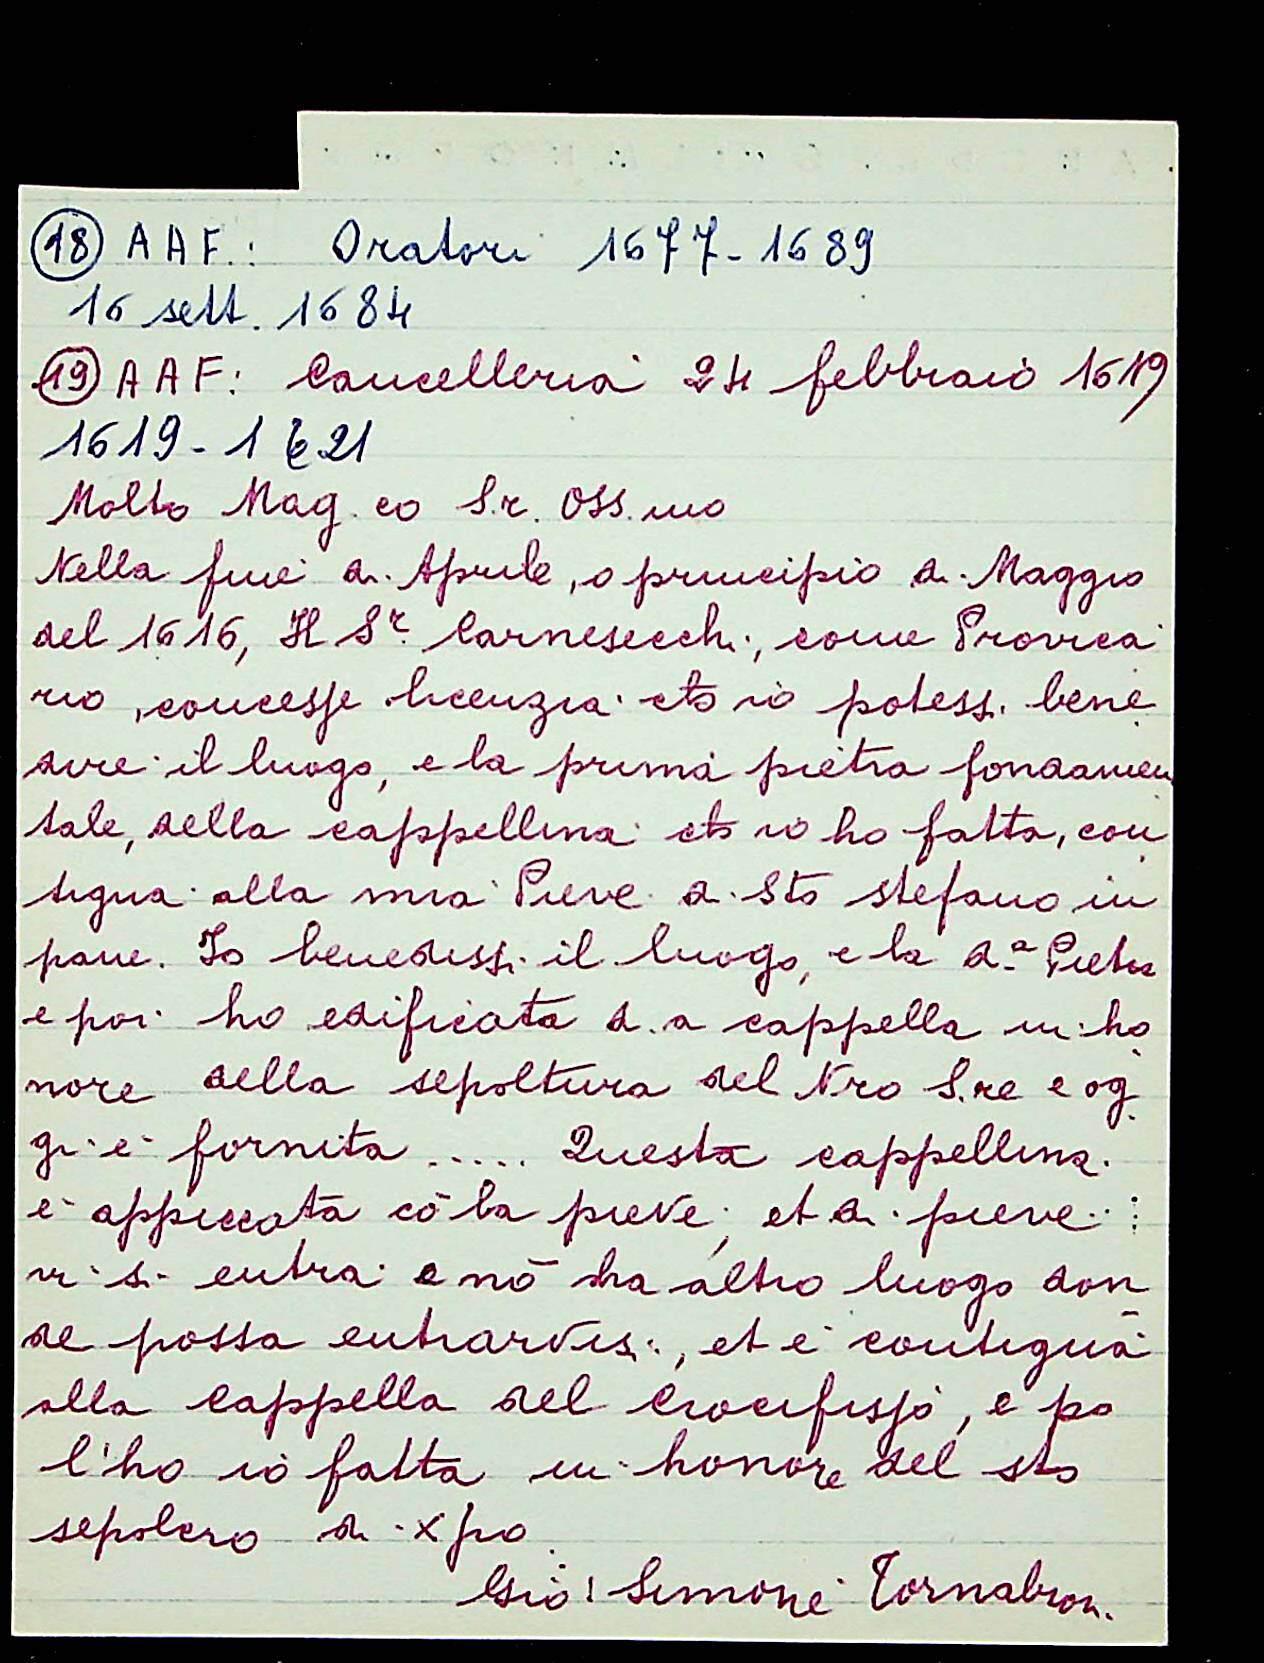 18 AAF.: Oratori 1677-1689
16 sett. 1684
19 AAF: Cancelleria 24 febbraio 1619
1619-1621
Molto Mag.co S.r. Oss.mo
Nella fine di Aprile, o principio di Maggio
del 1616, Il Sr. Carnesecchi, come Provica
rio, concesse licenzia ch'io potessi bene
dire il luogo, e la prima pietra fondamen
tale, della cappellina ch'io ho fatta, con
tigua alla mia Pieve di Sto Stefano in
pane. Io benedissi il luogo, e la d.a Pietra
e poi ho edificata d.a cappella in ho
nore della sepoltura del Nro S.re e og
gi è fornita ..... Questa cappellina
è appiccata cō la pieve, et di pieve
vi si entra e nō ha altro luogo don
de possa entrarvisi, et è contigua
alla Cappella del Crocifisso, e po
l'ho io fatta in honore del sto
sepolcro di Xpo.
Giò: Simone Tornabuon.